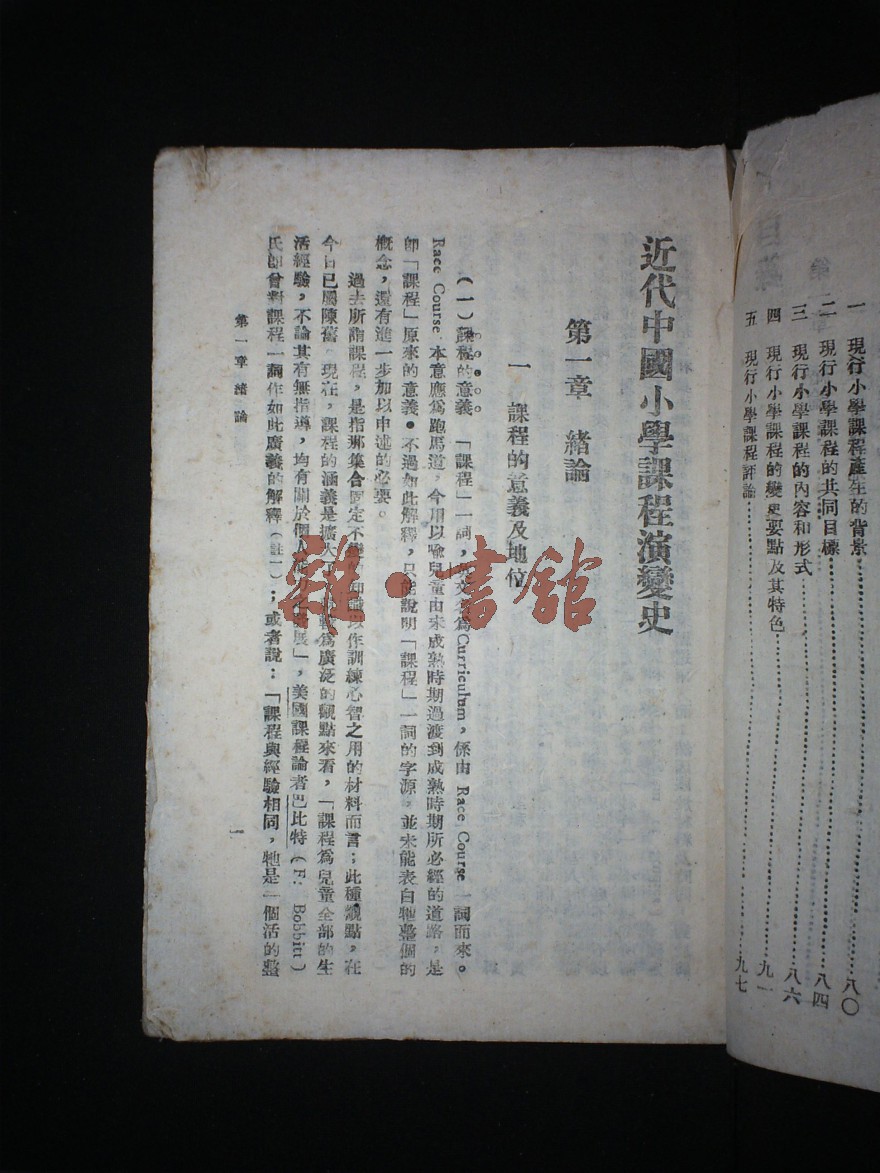 一　現行小學課程產生的背景……八〇
二　現行小學課程的共同目標……八四
三　現行小學課程的內容和形式……八六
四　現行小學課程的變史要點及其特色……九一
五　現行小學課程評論……九七
近代中國小學課程演變史
第一章　緒論
一　課程的意義及地位
（一）課程的意義　「課程」一詞，英文名為Curriculum，係由 Race Course 一詞而來。
Race Course 本意應為跑馬道，今用以喻兒童由未成熟時期過渡到成熟時期所必經的道路，是
即「課程」原來的意義。不過如此解釋，只能說明「課程」一詞的字源，並未能表白牠整個的
概念，還有進一步加以申述的必要。
過去所謂課程，是指那集合固定不變的知識以作訓練心智之用的材料而言；此種觀點，在
今日已屬陳舊。現在，課程的涵義是擴大了，較為廣泛的觀點來看，「課程為兒童全部的生
活經驗，不論其有無指導，均有關於個人能力之發展」，美國課程論者巴比特（F. Bobbitt）
氏即曾對課程一詞作如此廣義的解釋（註一）；或者說：「課程與經驗相同，牠是一個活的整
第一章　緒論
一
雜·書館